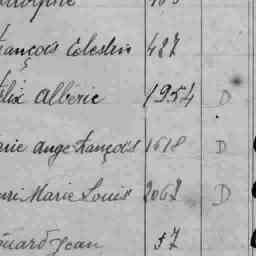 François Celestin 427
Félix Albéric 1954 D
Marie Ange François 1618 D
Henri Marie Louis 2067 D
Edouard Jean 57